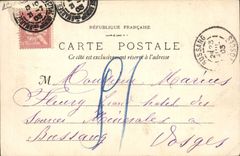 RÉPUBLIQUE FRANÇAISE
CARTE POSTALE
Ce côté est exclusivement réservé à l'adresse
M Monsieur Marius
Fleury Grand hôtel des
Sources Minérales à
Bussang Vosges
BUSSANG